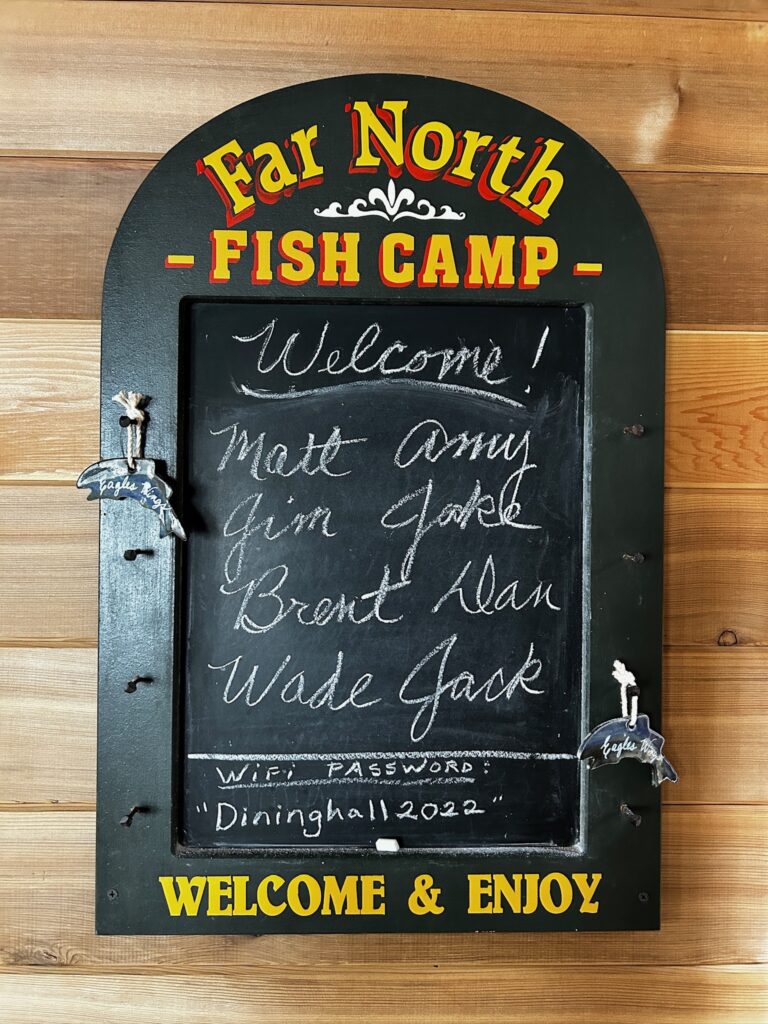 Far North
- FISH CAMP -
Welcome!
Matt Amy
Jim Jake
Brent Dan
Wade Jack
Eagles Wings
Eagles
WiFi PASSWORD:
"Dininghall2022"
WELCOME & ENJOY